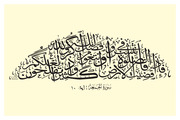 فَإِذَا قُضِيَتِ الصَّلَاةُ فَانتَشِرُوا فِي الْأَرْضِ وَابْتَغُوا مِن فَضْلِ اللَّهِ وَاذْكُرُوا اللَّهَ كَثِيرًا لَّعَلَّكُمْ تُفْلِحُونَ
سورة الجمعة ١٠